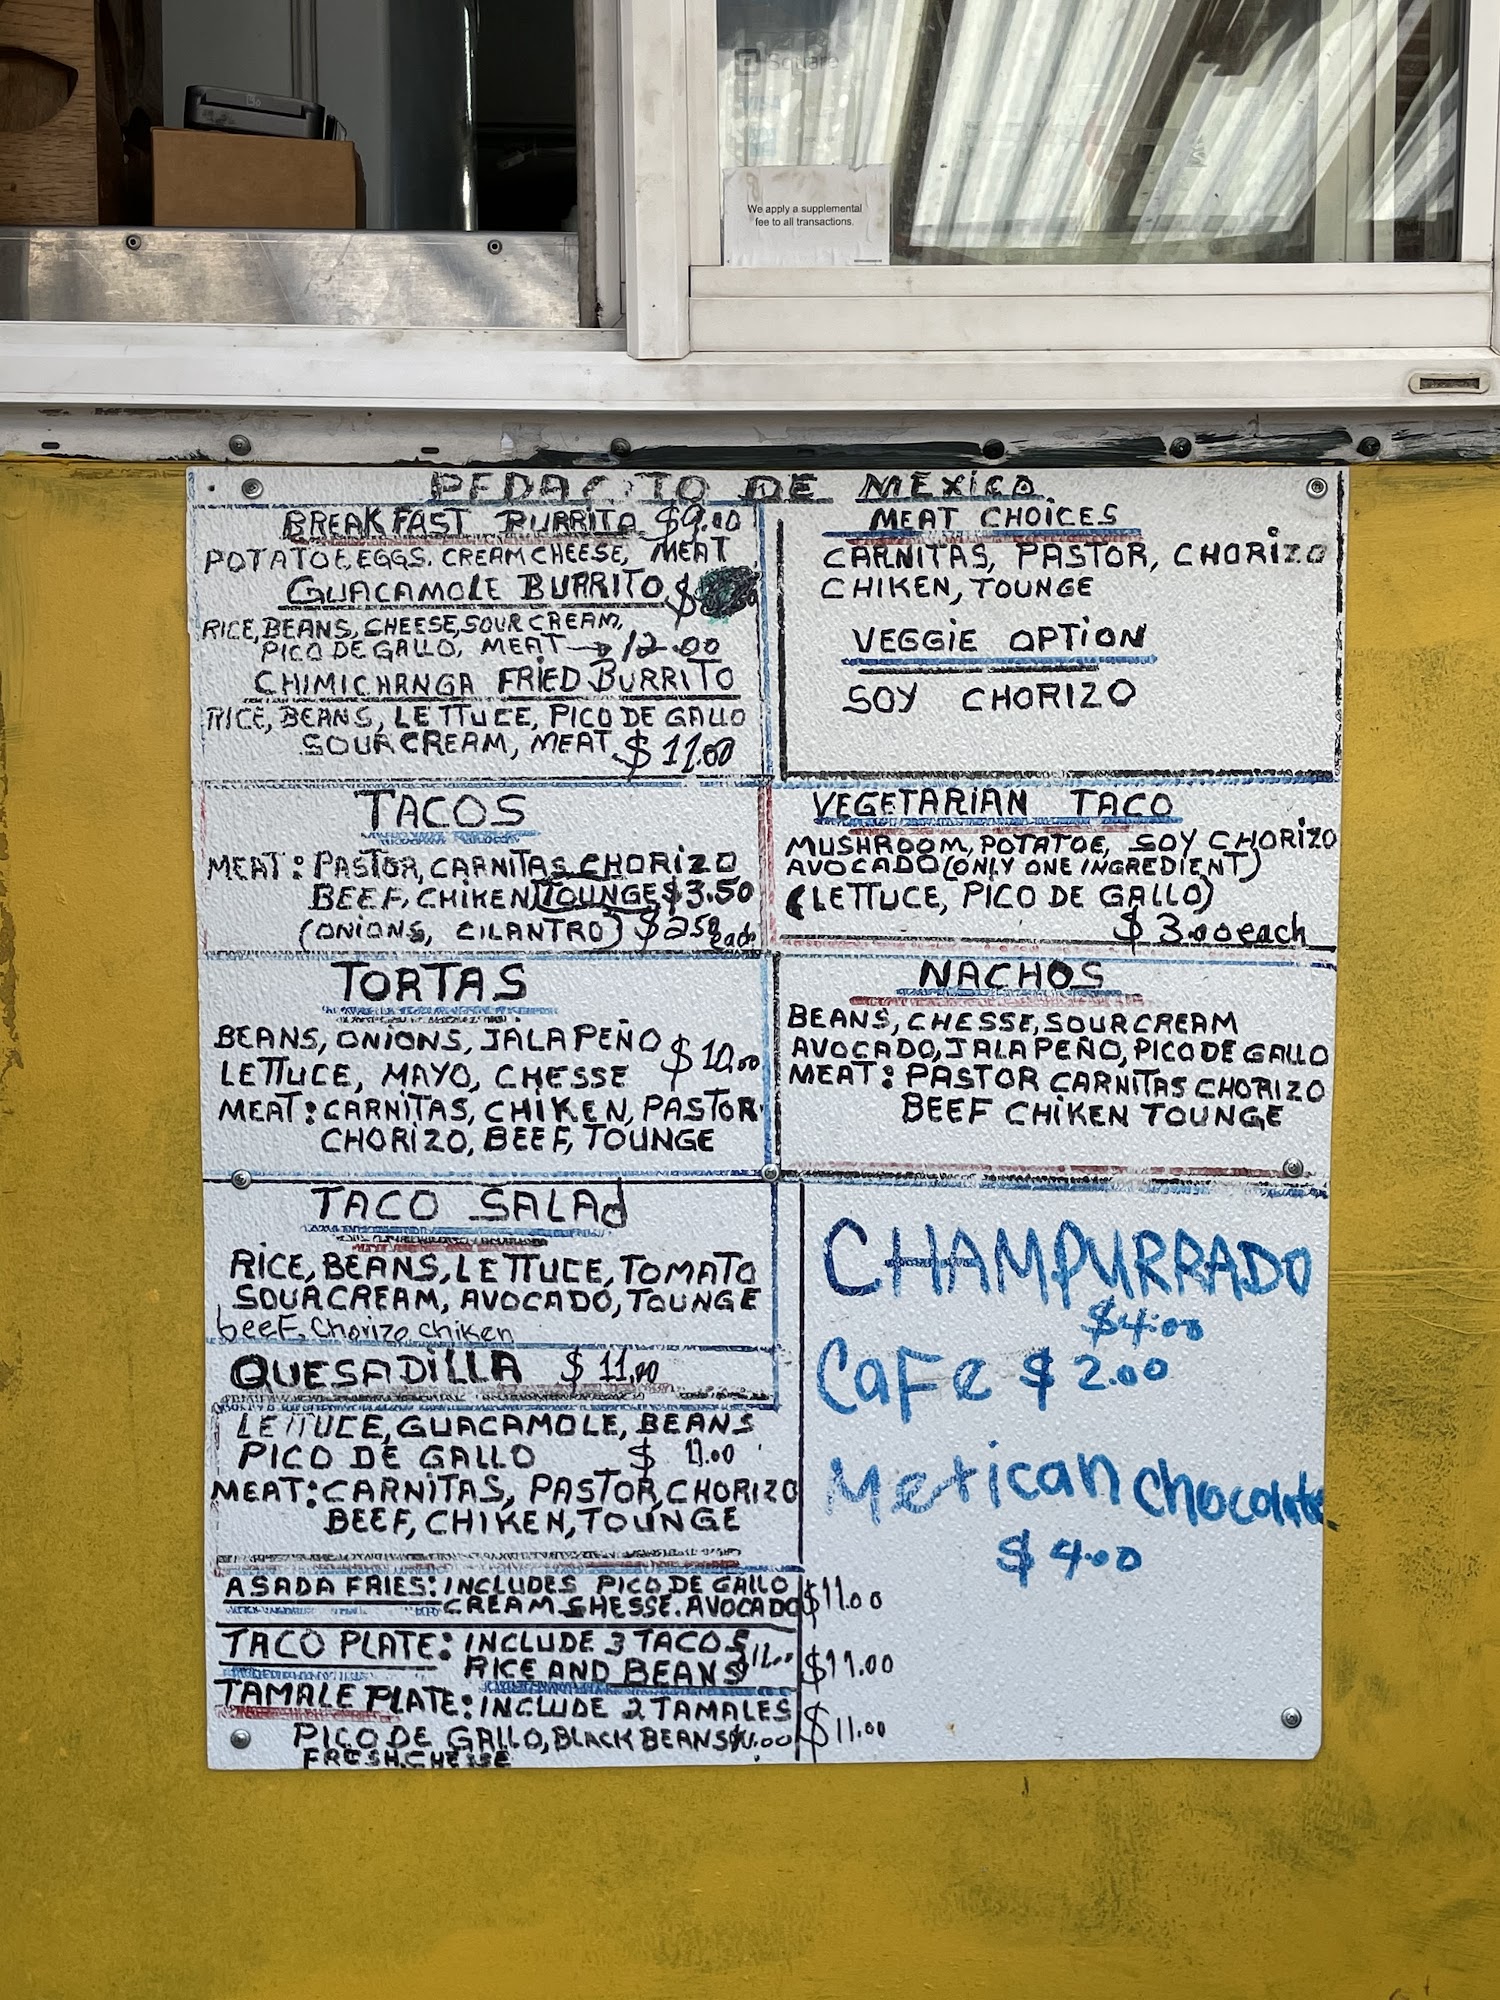 Square
VISA
We apply a supplemental
fee to all transactions.
PEDACITO DE MÉXICO
BREAKFAST BURRITO $9.00
POTATOE EGGS. CREAM CHEESE, MEAT
GUACAMOLE BURRITO $
RICE, BEANS, CHEESE, SOUR CREAM,
PICO DE GALLO, MEAT → 12.00
CHIMICHANGA FRIED BURRITO
RICE, BEANS, LETTUCE, PICO DE GALLO
SOUR CREAM, MEAT $11.00
MEAT CHOICES
CARNITAS, PASTOR, CHORIZO
CHIKEN, TOUNGE
VEGGIE OPTION
SOY CHORIZO
TACOS
MEAT: PASTOR, CARNITAS CHORIZO
BEEF, CHIKEN, TOUNGE $3.50
(ONIONS, CILANTRO) $2.50 each
VEGETARIAN TACO
MUSHROOM, POTATOE, SOY CHORIZO
AVOCADO (ONLY ONE INGREDIENT)
(LETTUCE, PICO DE GALLO)
$3.00 each
TORTAS
BEANS, ONIONS, JALAPEÑO $10.00
LETTUCE, MAYO, CHESSE
MEAT: CARNITAS, CHIKEN, PASTOR
CHORIZO, BEEF, TOUNGE
NACHOS
BEANS, CHESSE, SOUR CREAM
AVOCADO, JALAPEÑO, PICO DE GALLO
MEAT: PASTOR CARNITAS CHORIZO
BEEF CHIKEN TOUNGE
TACO SALAd
RICE, BEANS, LETTUCE, TOMATO
SOUR CREAM, AVOCADO, TOUNGE
beeF, Chorizo chiken
QUESADILLA $11.00
LETTUCE, GUACAMOLE, BEANS
PICO DE GALLO $11.00
MEAT: CARNITAS, PASTOR, CHORIZO
BEEF, CHIKEN, TOUNGE
ASADA FRIES: INCLUDES PICO DE GALLO
CREAM CHESSE. AVOCADO $11.00
TACO PLATE: INCLUDE 3 TACOS
RICE AND BEANS $11.00 $11.00
TAMALE PLATE: INCLUDE 2 TAMALES
PICO DE GALLO, BLACK BEANS $11.00 $11.00
FRESH CHESSE
CHAMPURRADO
$4.00
CaFe $2.00
Mexican chocolate
$4.00